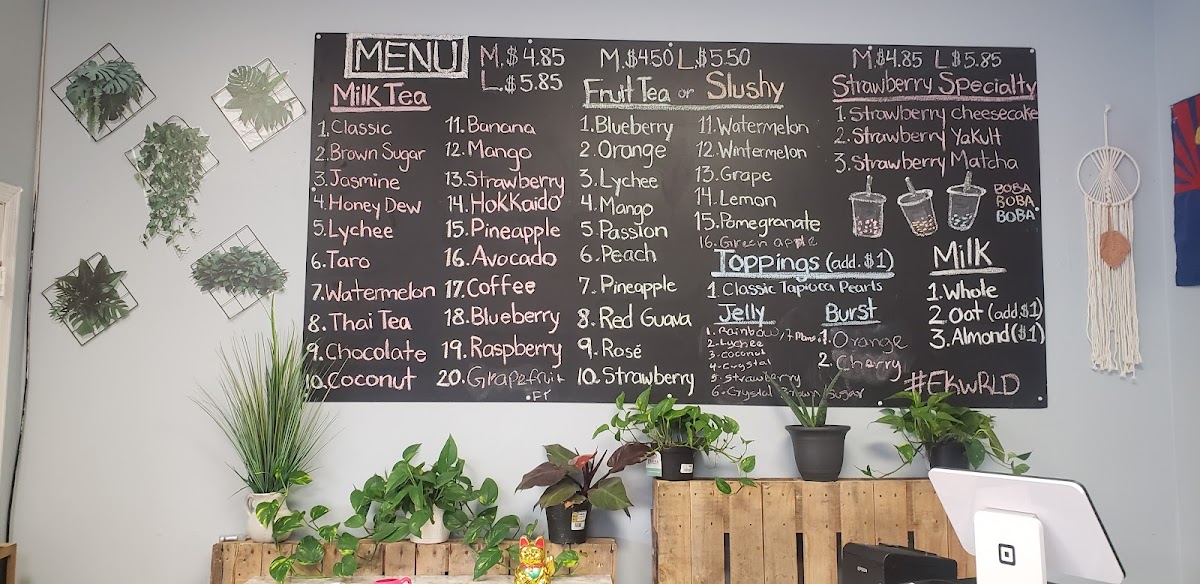 MENU
M.$4.85
L.$5.85
Milk Tea
1. Classic
2. Brown Sugar
3. Jasmine
4. Honey Dew
5. Lychee
6. Taro
7. Watermelon
8. Thai Tea
9. Chocolate
10. Coconut
11. Banana
12. Mango
13. Strawberry
14. HoKKaido
15. Pineapple
16. Avocado
17. Coffee
18. Blueberry
19. Raspberry
20. Grapefruit
M.$450 L.$5.50
Fruit Tea or Slushy
1. Blueberry
2. Orange
3. Lychee
4. Mango
5. Passion
6. Peach
7. Pineapple
8. Red Guava
9. Rosé
10. Strawberry
11. Watermelon
12. Wintermelon
13. Grape
14. Lemon
15. Pomegranate
16. Green apple
Toppings (add. $1)
1 Classic Tapioca Pearls
Jelly
1. Rainbow
2. Lychee
3. coconut
4. Crystal
5. strawberry
6. Crystal Brown Sugar
Burst
1. Orange
2. Cherry
M.$4.85 L.$5.85
Strawberry Specialty
1. Strawberry cheesecake
2. Strawberry Yakult
3. Strawberry Matcha
BOBA
BOBA
BOBA
Milk
1. Whole
2. Oat (add.$1)
3. Almond ($1)
#EKWRLD
EPSON